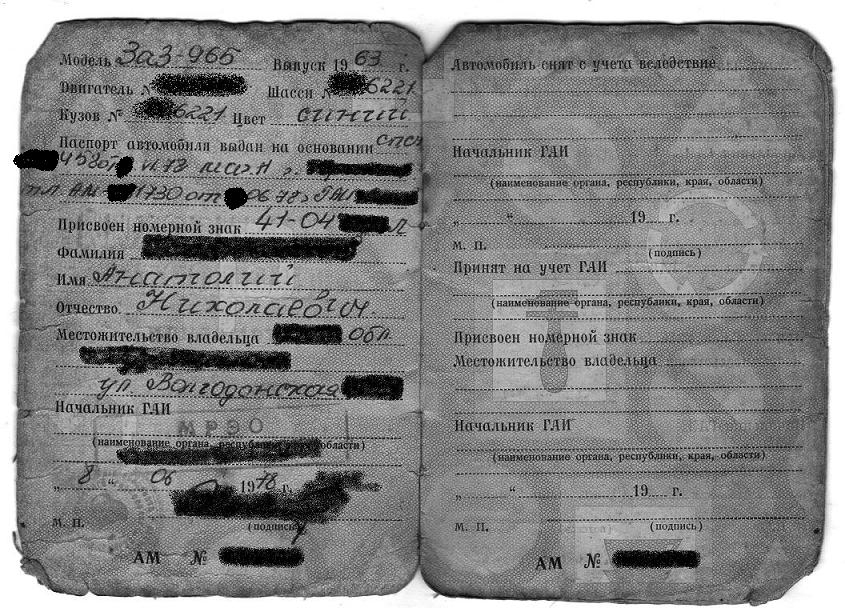 Модель ЗаЗ-965 Выпуск 1963 г.
Двигатель № Шасси № 6221
Кузов № 6221 Цвет синий
Паспорт автомобиля выдан на основании
Присвоен номерной знак 41-04
Фамилия
Имя Анатолий
Отчество Николаевич
Местожительство владельца обл.
ул Волгодонская
Начальник ГАИ
МРЭО
(наименование органа, республики, края, области)
„ 8 “ 06 1978 г.
М. П.
(подпись)
АМ №
Автомобиль снят с учета вследствие
Начальник ГАИ
(наименование органа, республики, края, области)
„ “ 19 г.
М. П.
(подпись)
Принят на учет ГАИ
(наименование органа, республики, края, области)
Присвоен номерной знак
Местожительство владельца
Начальник ГАИ
(наименование органа, республики, края, области)
„ “ 19 г.
М. П.
(подпись)
АМ №